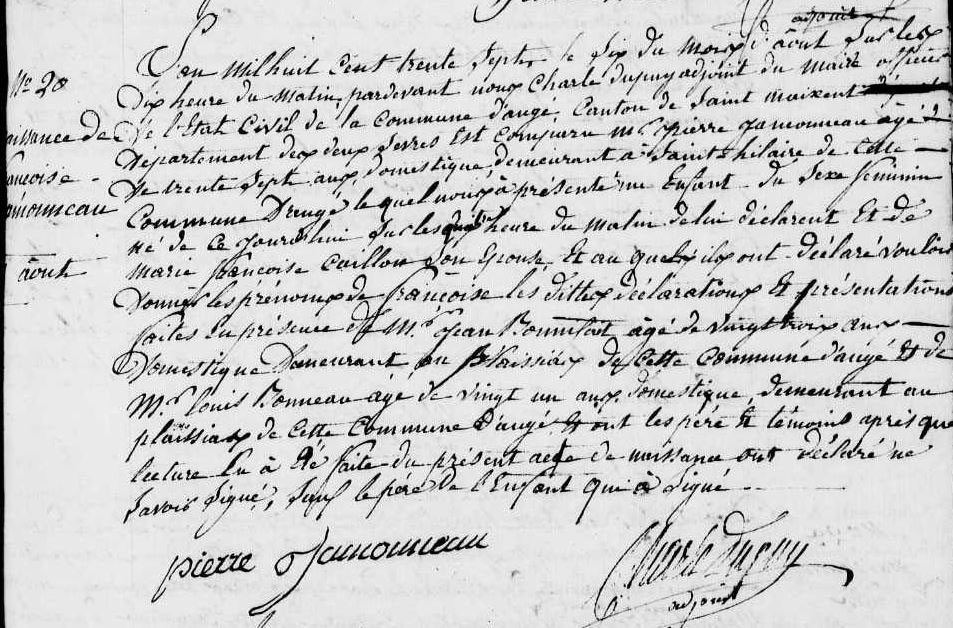 adjoint
N° 20
aissance de
ancoise
amonneau
août
L'an mil huit cent trente Sept le Six du Mois d'août Sur les
Dix heure du Matin, pardevant nous Charle Dupuy adjoint du Maire officier
de l'Etat Civil de la Commune d'augé, Canton de Saint Maixent
Departement des deux Sevres Est Comparu M. pierre Jamonneau âgé
De trente Sept ans, domestique, demeurant à Saint hilaire de Cette
Commune D'augé le quel nous à présenté un Enfant du Sexe féminin
né de Ce Jourd'hui Sur les heure du Matin de lui déclarent Et de
Marie françoise Caillon Son Epouse Et au quel ils ont déclaré vouloir
Donner les prénoms de françoise les dittes déclarations Et présentations
faites En présence de M. Jean Bonnifait, âgé de vingt trois ans
Domestique Demeurant au plaissias de Cette Commune d'augé Et de
M. louis Bonneau âgé de vingt un ans, domestique, demeurant au
plaissias de Cette Commune D'augé, Et ont les péré Et témoins après que
lecture lu à Eté faite du présent acte de naissance ont déclaré ne
Savoir Signé, Seuf le pére de l'Enfant qui à Signé
pierre Jamonneau
Charle Dupuy
adjoint